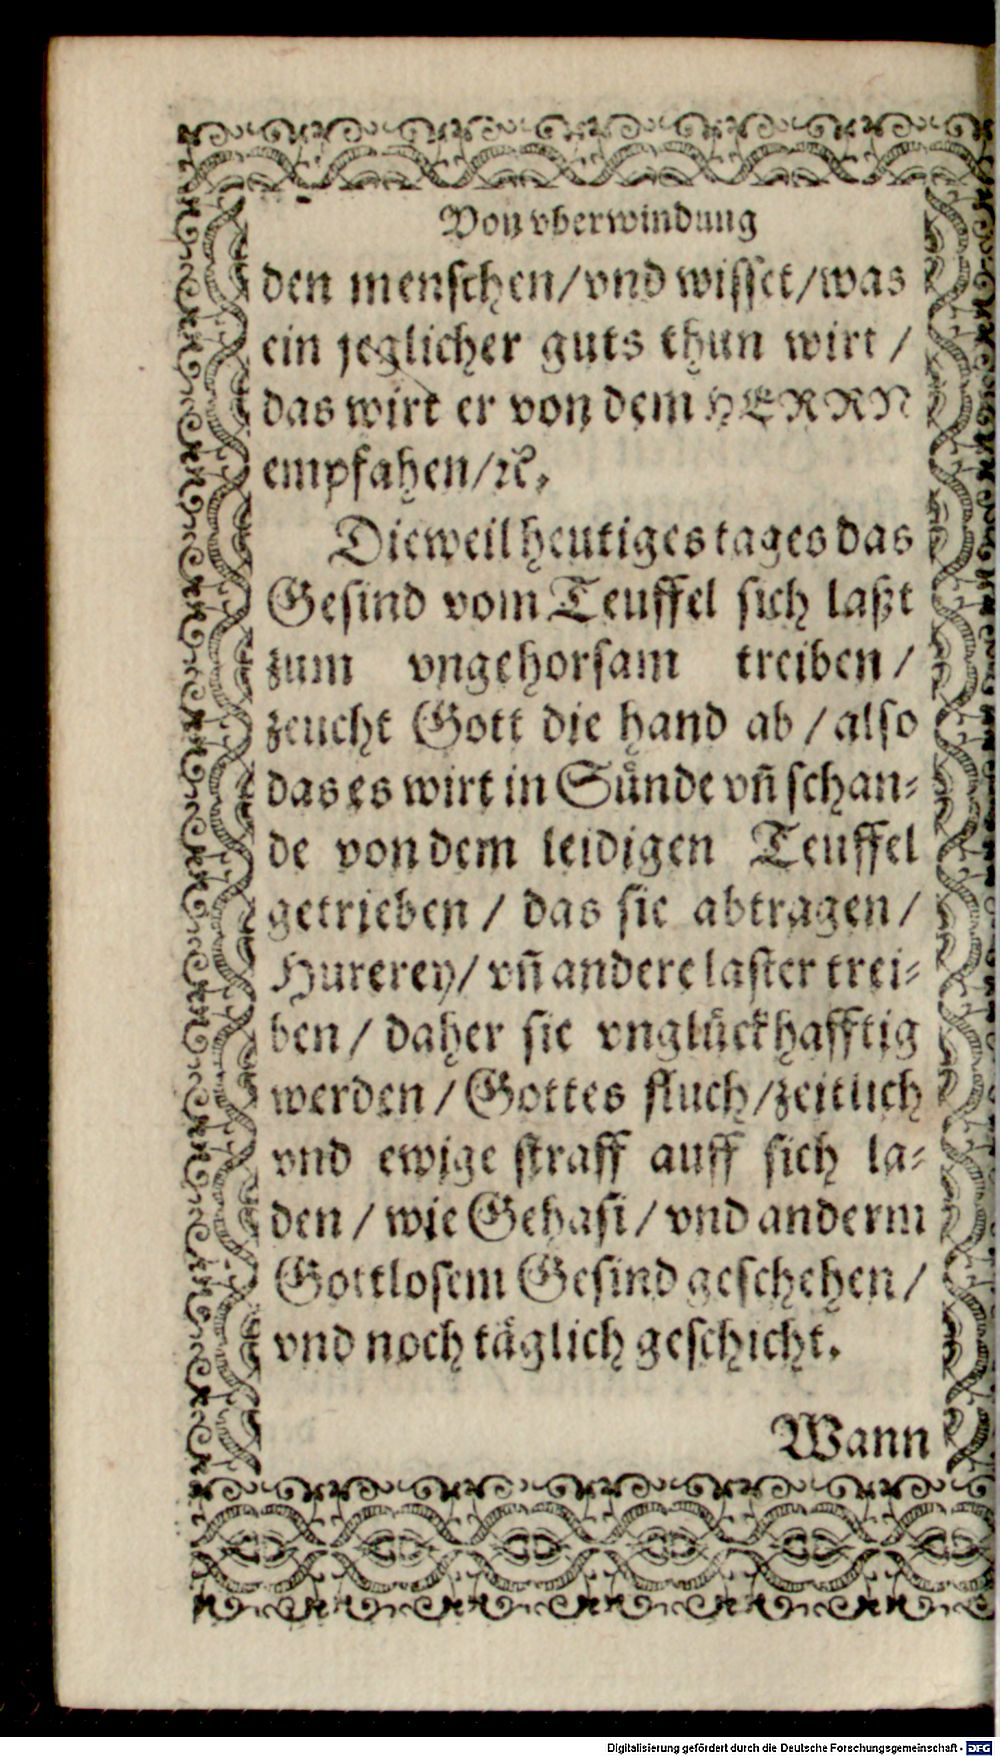 Von vberwindung
den menschen/vnd wisset/was
ein jeglicher guts thun wirt /
das wirt er von dem HERRN
empfahen/ꝛc.
Dieweil heutiges tages das
Gesind vom Teuffel sich laßt
zum vngehorsam treiben /
zeucht Gott die hand ab / also
das es wirt in Sünde vñ schan⸗
de von dem leidigen Teuffel
getrieben / das sie abtragen /
Hurerey/ vñ andere laster trei⸗
ben / daher sie vnglückhafftig
werden / Gottes fluch/zeitlich
vnd ewige straff auff sich la⸗
den / wie Gehasi / vnd anderm
Gottlosem Gesind geschehen /
vnd noch täglich geschicht.
Wann
Digitalisierung gefördert durch die Deutsche Forschungsgemeinschaft - DFG